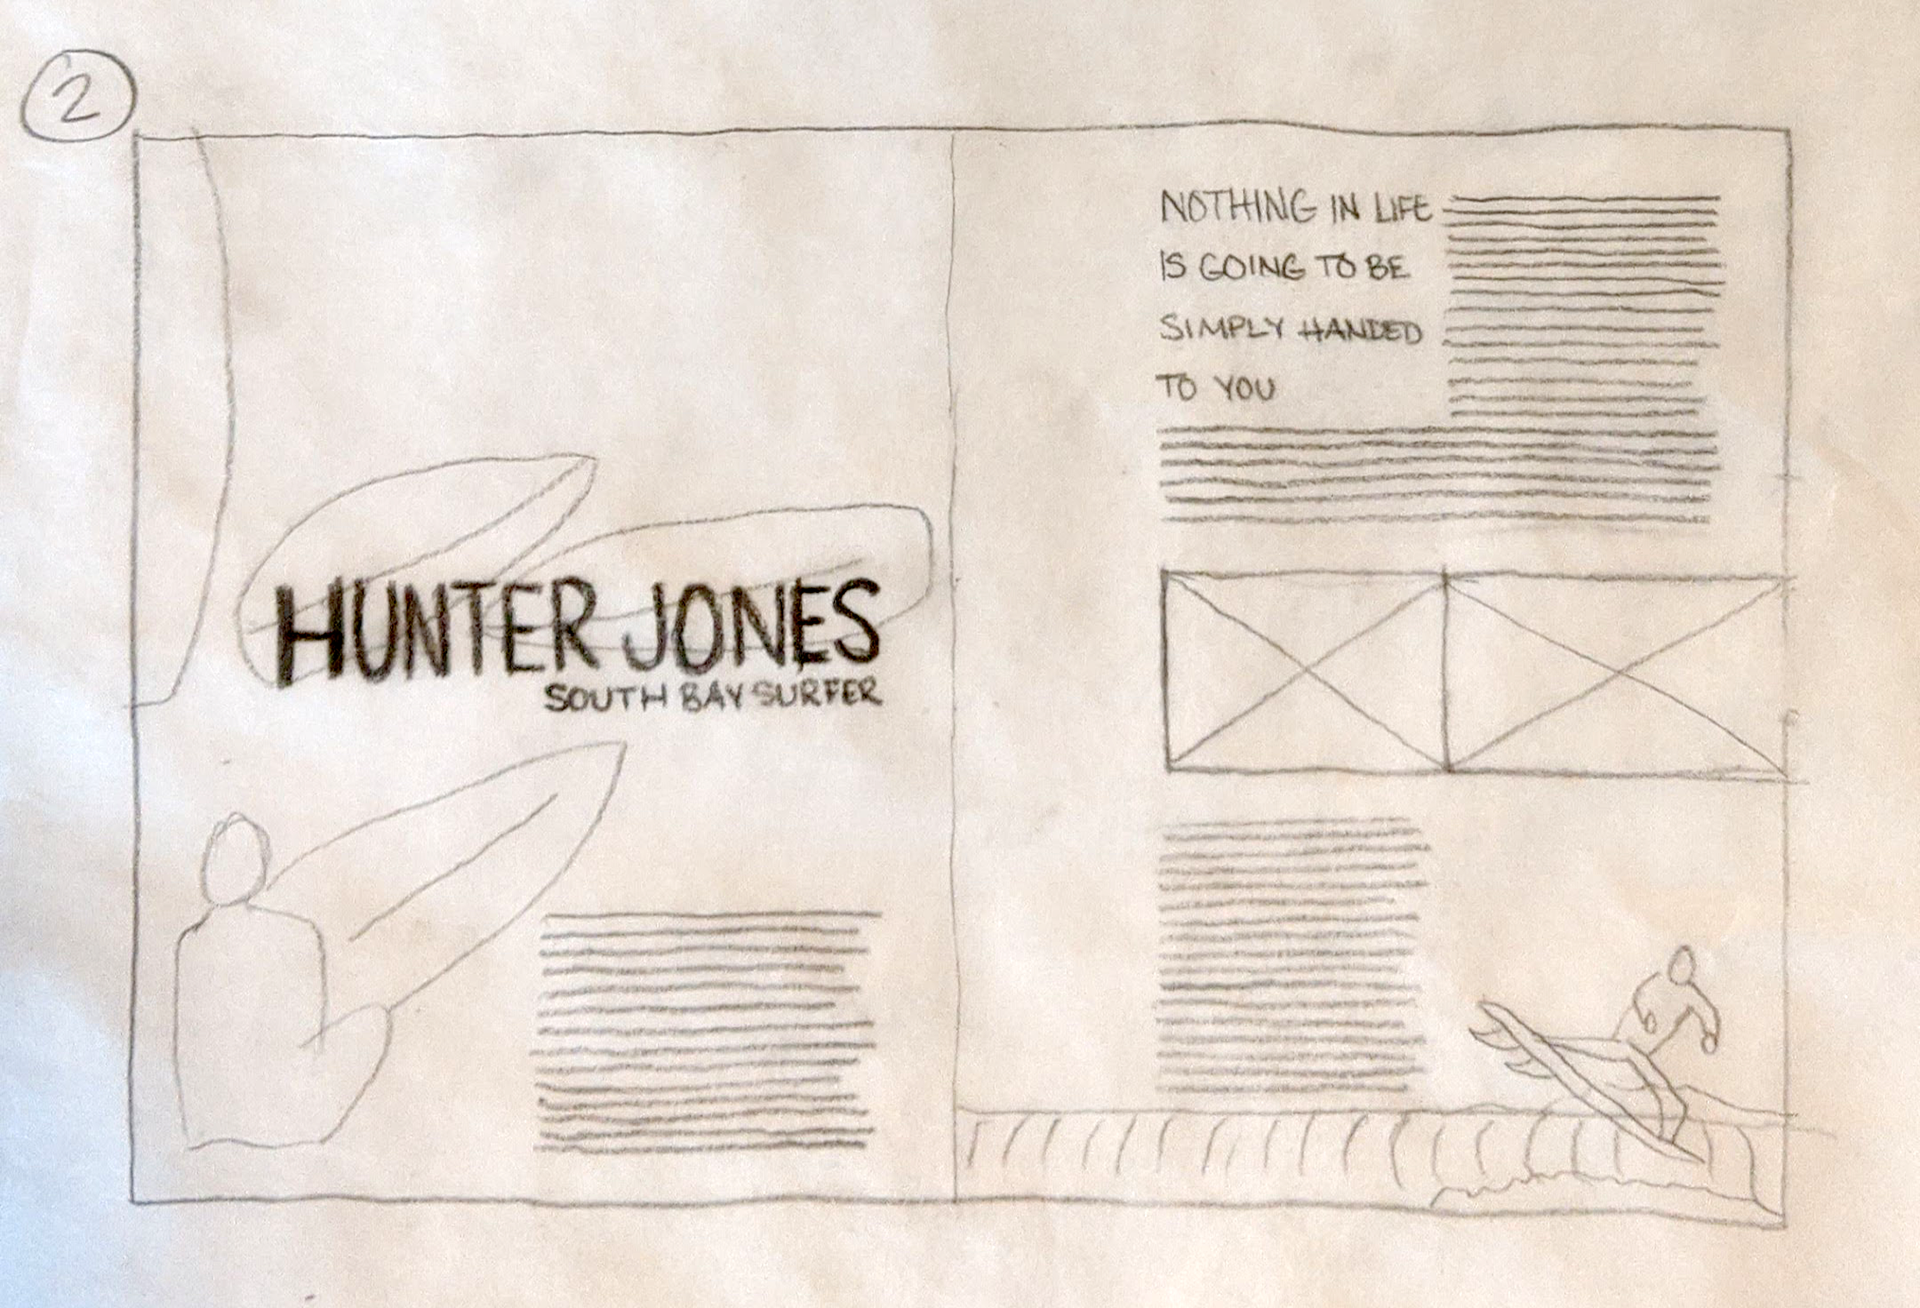 2
HUNTER JONES
SOUTH BAY SURFER
NOTHING IN LIFE
IS GOING TO BE
SIMPLY HANDED
TO YOU